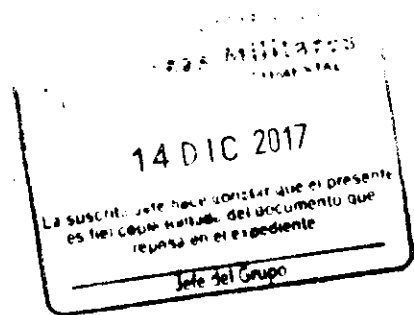 Militares
14 DIC 2017
La suscrita Jefe hace constar que el presente
es fiel copia del documento que
reposa en el expediente
Jefe del Grupo